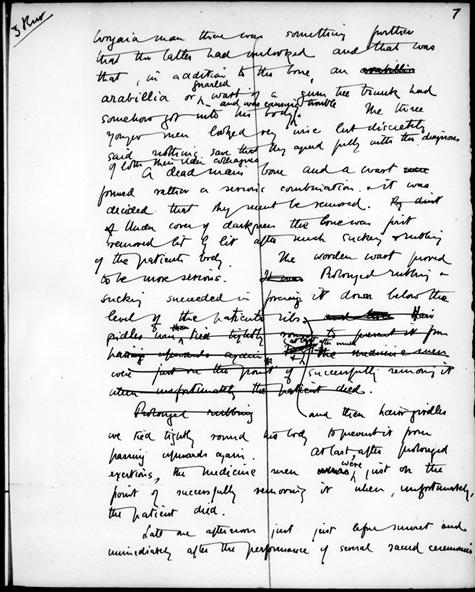 7
Worgaia man there was something further
that the latter had overlooked and that was
that, in addition to the bone, an arabillia
gnarled
arabillia or wart of a gum tree trunk had
and was causing trouble
somehow got into his body. The three
younger men looked very wise but discreetly
said nothing save that they agreed fully with the diagnosis
of both their older colleagues
A dead man's bone and a wart
formed rather a serious combination & it was
decided that they must be removed. By dint
of Under cover of darkness the bone was first
removed bit by bit after much sucking & rubbing
of the patient's body. The wooden wart proved
to be more serious. It was Prolonged rubbing &
sucking succeeded in forcing it down below the
level of the patient's ribs and Hair
girdles were then tied tightly round to prevent it from
at last after much
passing upwards again & the medicine men
were just on the point of successfully removing it
when unfortunately the patient died.
Prolonged rubbing and then hair girdles
were tied tightly round his body to prevent it from
passing upwards again. At last, after prolonged
were
exertions, the medicine men just on the
point of successfully removing it when, unfortunately,
the patient died.
Late one afternoon just just before sunset and
immediately after the performance of several sacred ceremonies